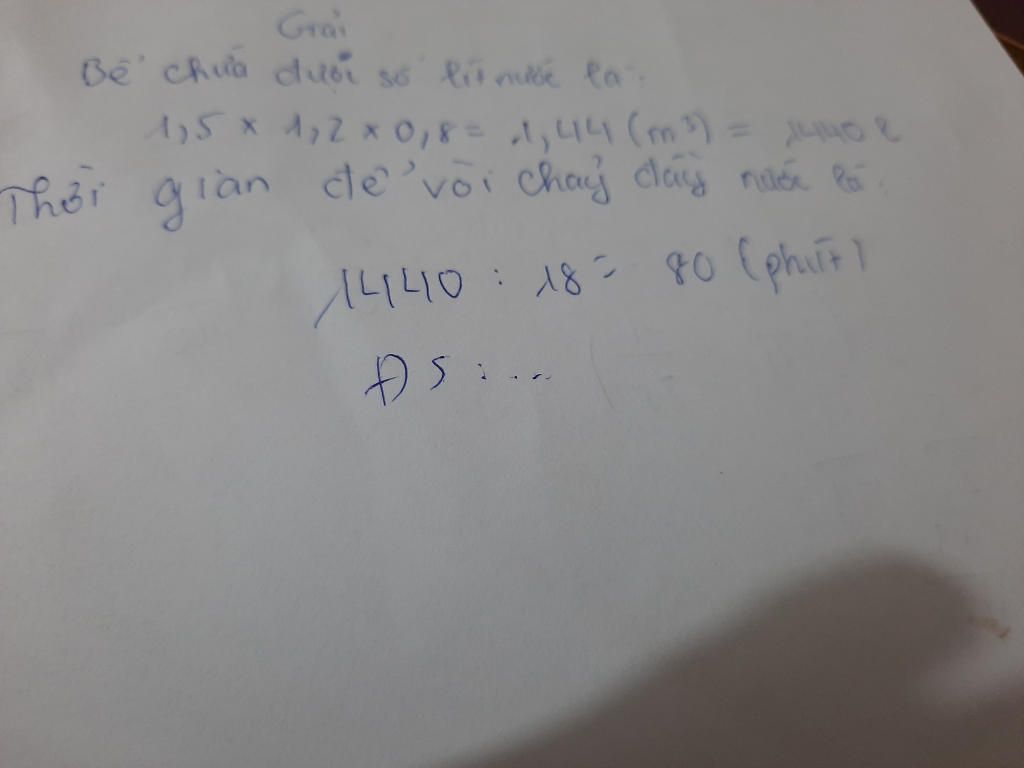 Giải
Bể chứa được số lít nước là:
1,5 × 1,2 × 0,8 = 1,44 (m³) = 1440 l
Thời gian để vòi chảy đầy nước là:
1440 : 18 = 80 (phút)
ĐS : ...